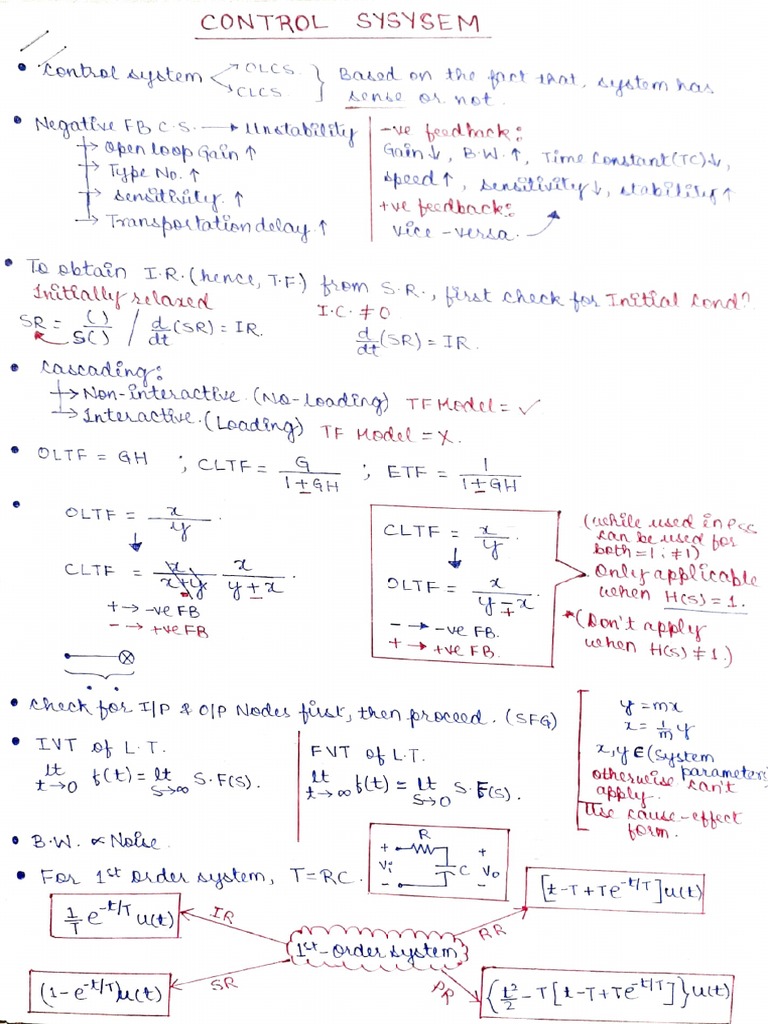 CONTROL SYSYSEM
• Control system < OLCS. CLCS. } Based on the fact that, system has
sense or not.
• Negative FB C.S. → Unstability
→ Open loop Gain ↑
→ Type No. ↑
→ Sensitivity ↑
→ Transportation delay ↑
-ve feedback:
Gain ↓, B.W. ↑, Time Constant (TC) ↓,
speed ↑, sensitivity ↓, stability ↑
+ve feedback:
vice-versa.
• To obtain I.R. (hence, T.F.) from S.R., first check for Initial Cond?
Initially relaxed
I.C. ≠ 0
SR = ( ) / S( ) / d/dt (SR) = IR.
d/dt (SR) = IR.
• Cascading:
→ Non-interactive. (No-loading) TF Model = ✓
→ Interactive. (Loading) TF Model = X.
• OLTF = GH ; CLTF = G / 1±GH ; ETF = 1 / 1±GH
• OLTF = x / y.
↓
CLTF = x / x+y x / y±x.
+ → -ve FB
- → +ve FB
CLTF = x / y.
↓
OLTF = x / y∓x
- → -ve FB.
+ → +ve FB.
(while used in PSS
can be used for
both = 1 ; ≠ 1)
Only applicable
when H(s) = 1.
*(Don't apply
when H(s) ≠ 1.)
• Check for I/P & O/P Nodes first, then proceed. (SFG)
y = mx
x = 1/m y
x, y ∈ (System
parameters)
otherwise can't
apply.
Use cause-effect
form.
• IVT of L.T.
lt t→0 f(t) = lt s→∞ S.F(s).
FVT of L.T.
lt t→∞ f(t) = lt s→0 S.F(s).
• B.W. ∝ Noise.
• For 1st order system, T = RC.
R
+ +
Vi C Vo
- -
1/T e^-t/T u(t)
IR
[t-T+Te^-t/T]u(t)
RR
1st-order system
(1-e^-t/T)u(t)
SR
PR
{t²/2 - T[t-T+Te^-t/T]}u(t)